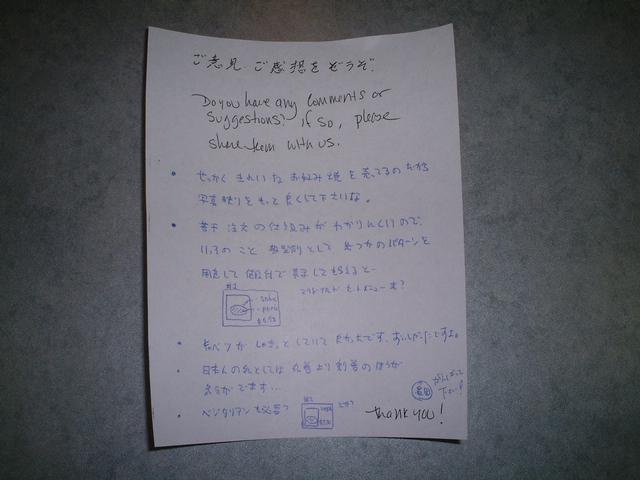 ご意見、ご感想をどうぞ。
Do you have any comments or
suggestions? if so, please
share them with us.
• せっかく きれいな お好み焼を 売ってるのだから
写真映りをもっと良くして下さいな。
• 若干 注文の仕組みが わかりにくいので、
いっそのこと 典型的として いくつかのパターンを
用意して 値段付で 表示してもらえると—
#1
セットメニュー

• キャベツが しゃきっとしていて よかったです。おいしかったですよ。
• 日本人の私としては 丸箸より 割箸のほうが
• ベジタリアンも必要?
#2
とか?
がんばって
下さい!
thank you!